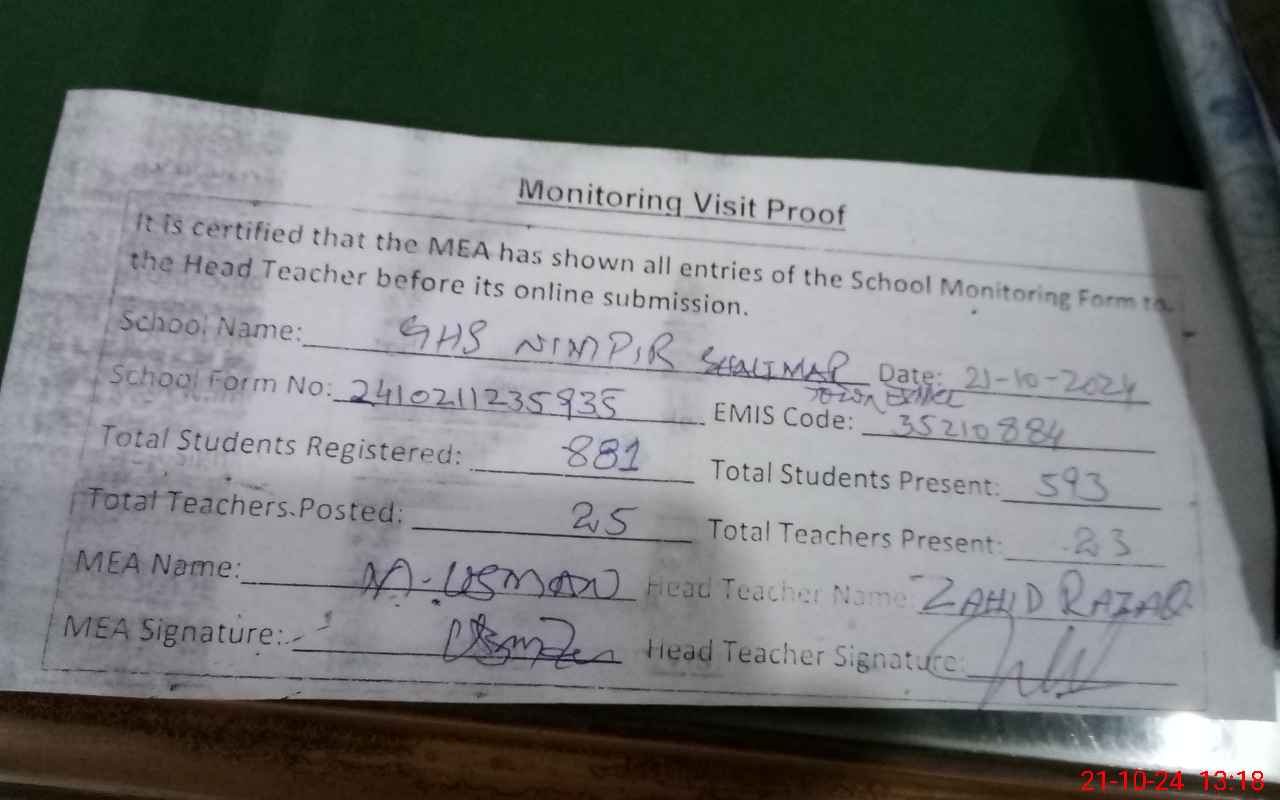 Monitoring Visit Proof
It is certified that the MEA has shown all entries of the School Monitoring Form to
the Head Teacher before its online submission.
School Name: GHS NIMPIR SHALIMAR Date: 21-10-2024
TOWN
School Form No: 2410211235935 EMIS Code: 35210884
Total Students Registered: 881 Total Students Present: 593
Total Teachers Posted: 25 Total Teachers Present: 23
MEA Name: M. USMAN Head Teacher Name: ZAHID RAZAQ
MEA Signature: Head Teacher Signature:
21-10-24 13:18